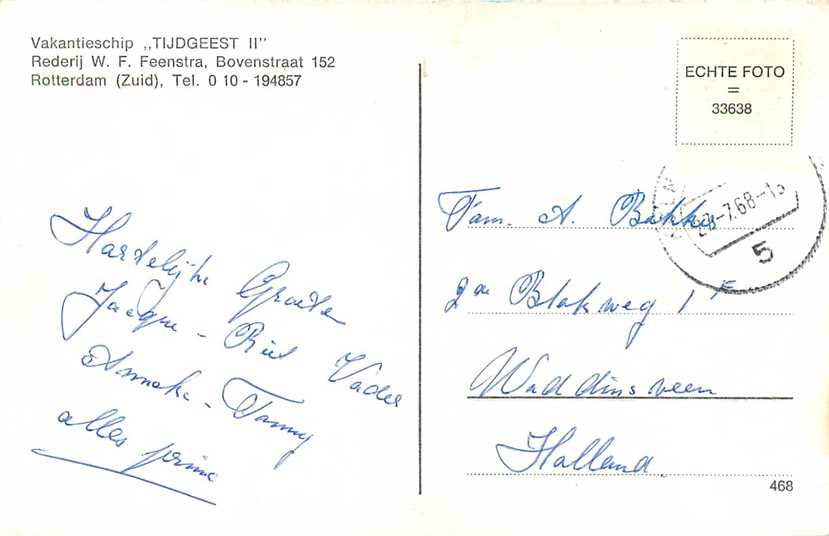 Vakantieschip „TIJDGEEST II"
Rederij W. F. Feenstra, Bovenstraat 152
Rotterdam (Zuid), Tel. 0 10 - 194857
ECHTE FOTO
=
33638
-7.68-13
5
Hartelijke Groeten
Jacque - Riet Vader
Anneke - Fanny
alles prima
Fam. A. Bakker
2de Blokweg 1 F
Waddinsveen
Holland
468